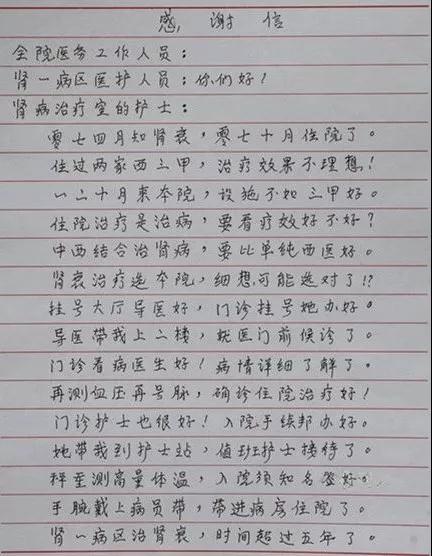 感谢信
全院医务工作人员：
肾一病区医护人员：你们好！
肾病治疗室的护士：
零七四月知肾衰，零七十月住院了。
住过两家西三甲，治疗效果不理想！
一二十月来本院，设施不如三甲好。
住院治疗是治病，要看疗效好不好？
中西结合治肾病，要比单纯西医好。
肾衰治疗选本院，细想可能选对了!?
挂号大厅导医好，门诊挂号她办好。
导医带我上二楼，就医门前候诊了。
门诊看病医生好！病情详细了解了。
再测血压再号脉，确诊住院治疗好！
门诊护士也很好！入院手续帮办好。
她带我到护士站，值班护士接待了。
秤重测高量体温，入院须知名签好。
手腕戴上病员带，带进病房住院了。
肾一病区治肾衰，时间超过五年了。